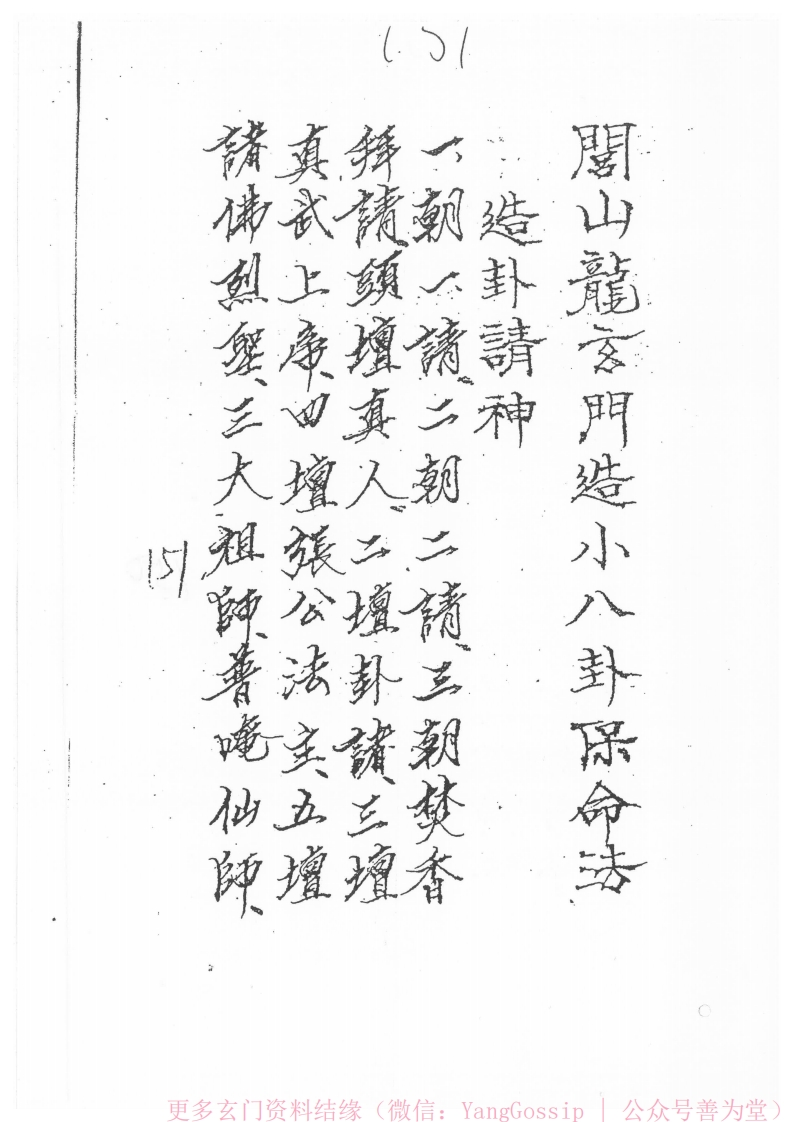 151
閭山龍玄門造小八卦保命法
造卦請神
一朝一請、二朝二請、三朝焚香
拜請頭壇真人、二壇卦諸、三壇
真武上帝、四壇張公法主、五壇
諸佛烈聖、三大祖師、普唵仙師、
151
更多玄门资料结缘（微信：YangGossip | 公众号善为堂）